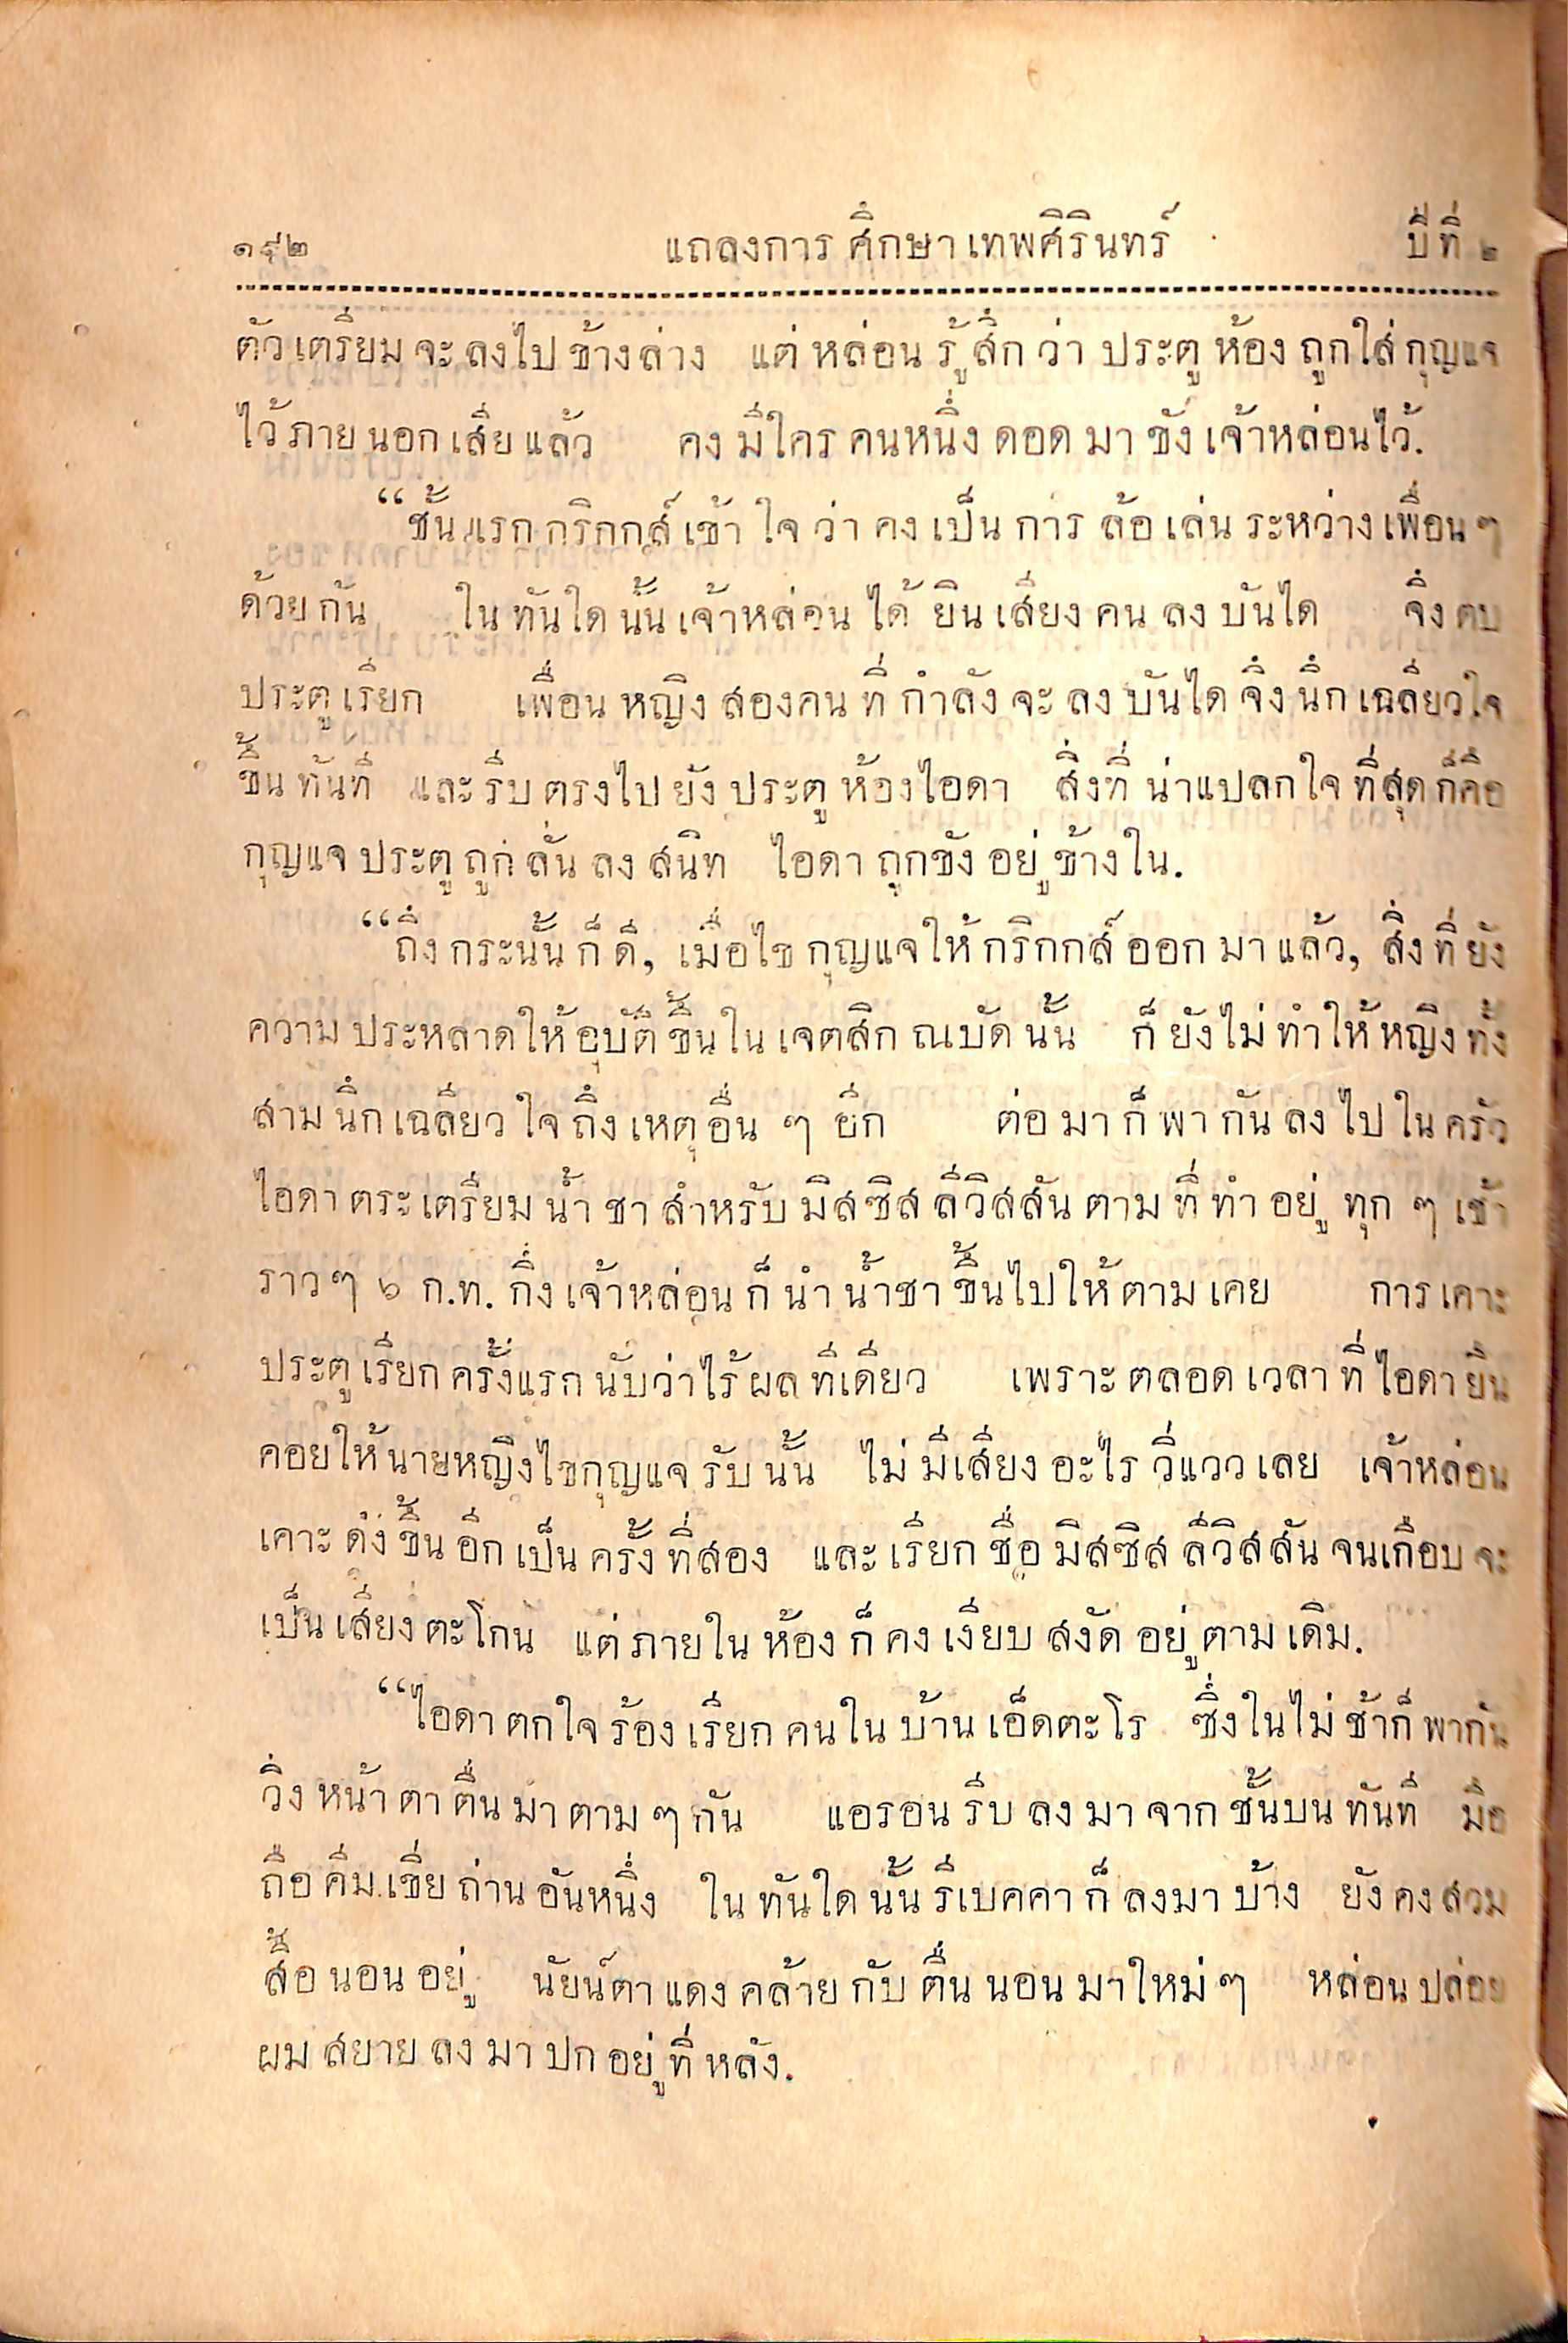 ๑๙๒ แถลงการศึกษาเทพศิรินทร์ ปีที่ ๒
ตัวเตรียมจะลงไปข้างล่าง แต่หล่อนรู้สึกว่าประตูห้องถูกใส่กุญแจ
ไว้ภายนอกเสียแล้ว คงมีใครคนหนึ่งดอดมาขังเจ้าหล่อนไว้.
“ชั้นแรกกริกกส์เข้าใจว่าคงเป็นการล้อเล่นระหว่างเพื่อนๆ
ด้วยกัน ในทันใดนั้นเจ้าหล่อนได้ยินเสียงคนลงบันได จึงตบ
ประตูเรียก เพื่อนหญิงสองคนที่กำลังจะลงบันไดจึงนึกเฉลียวใจ
ขึ้นทันที และรีบตรงไปยังประตูห้องไอดา สิ่งที่น่าแปลกใจที่สุดก็คือ
กุญแจประตูถูกลั่นลงสนิท ไอดาถูกขังอยู่ข้างใน.
“ถึงกระนั้นก็ดี, เมื่อไขกุญแจให้กริกกส์ออกมาแล้ว, สิ่งที่ยัง
ความประหลาดให้อุบัติขึ้นในเจตสิกณบัดนั้น ก็ยังไม่ทำให้หญิงทั้ง
สามนึกเฉลียวใจถึงเหตุอื่น ๆ อีก ต่อมาก็พากันลงไปในครัว
ไอดาตระเตรียมน้ำชาสำหรับมิสซิสลีวิสสันตามที่ทำอยู่ทุก ๆ เช้า
ราวๆ ๖ ก.ท. กึ่งเจ้าหล่อนก็นำน้ำชาขึ้นไปให้ตามเคย การเคาะ
ประตูเรียกครั้งแรกนับว่าไร้ผลทีเดียว เพราะตลอดเวลาที่ไอดายืน
คอยให้นายหญิงไขกุญแจรับนั้น ไม่มีเสียงอะไรวี่แววเลย เจ้าหล่อน
เคาะดังขึ้นอีกเป็นครั้งที่สอง และเรียกชื่อมิสซิสลีวิสสันจนเกือบจะ
เป็นเสียงตะโกน แต่ภายในห้องก็คงเงียบสงัดอยู่ตามเดิม.
“ไอดาตกใจร้องเรียกคนในบ้านเอ็ดตะโร ซึ่งในไม่ช้าก็พากัน
วิ่งหน้าตาตื่นมาตามๆกัน แอรอนรีบลงมาจากชั้นบนทันที มือ
ถือคีมเขี่ยถ่านอันหนึ่ง ในทันใดนั้นรีเบคคาก็ลงมาบ้าง ยังคงสวม
สื้อนอนอยู่ นัยน์ตาแดงคล้ายกับตื่นนอนมาใหม่ๆ หล่อนปล่อย
ผมสยายลงมาปกอยู่ที่หลัง.